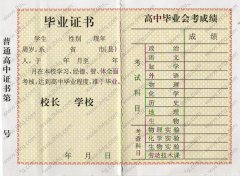 普通高中证书第
号
毕业证书
学生 性别 现年
周岁,系 省 市(县)
人,于 年 月至 年
月在本校学习,经德、智、体全面
考核,达到高中毕业程度,准于毕业。
校长 学校
年 月 日
高中毕业会考成绩
成绩
考试科目
政治
语文
数学
外语
物理
化学
历史
地理
生物
考查科目
物理实验
化学实验
生物实验
劳动技术课